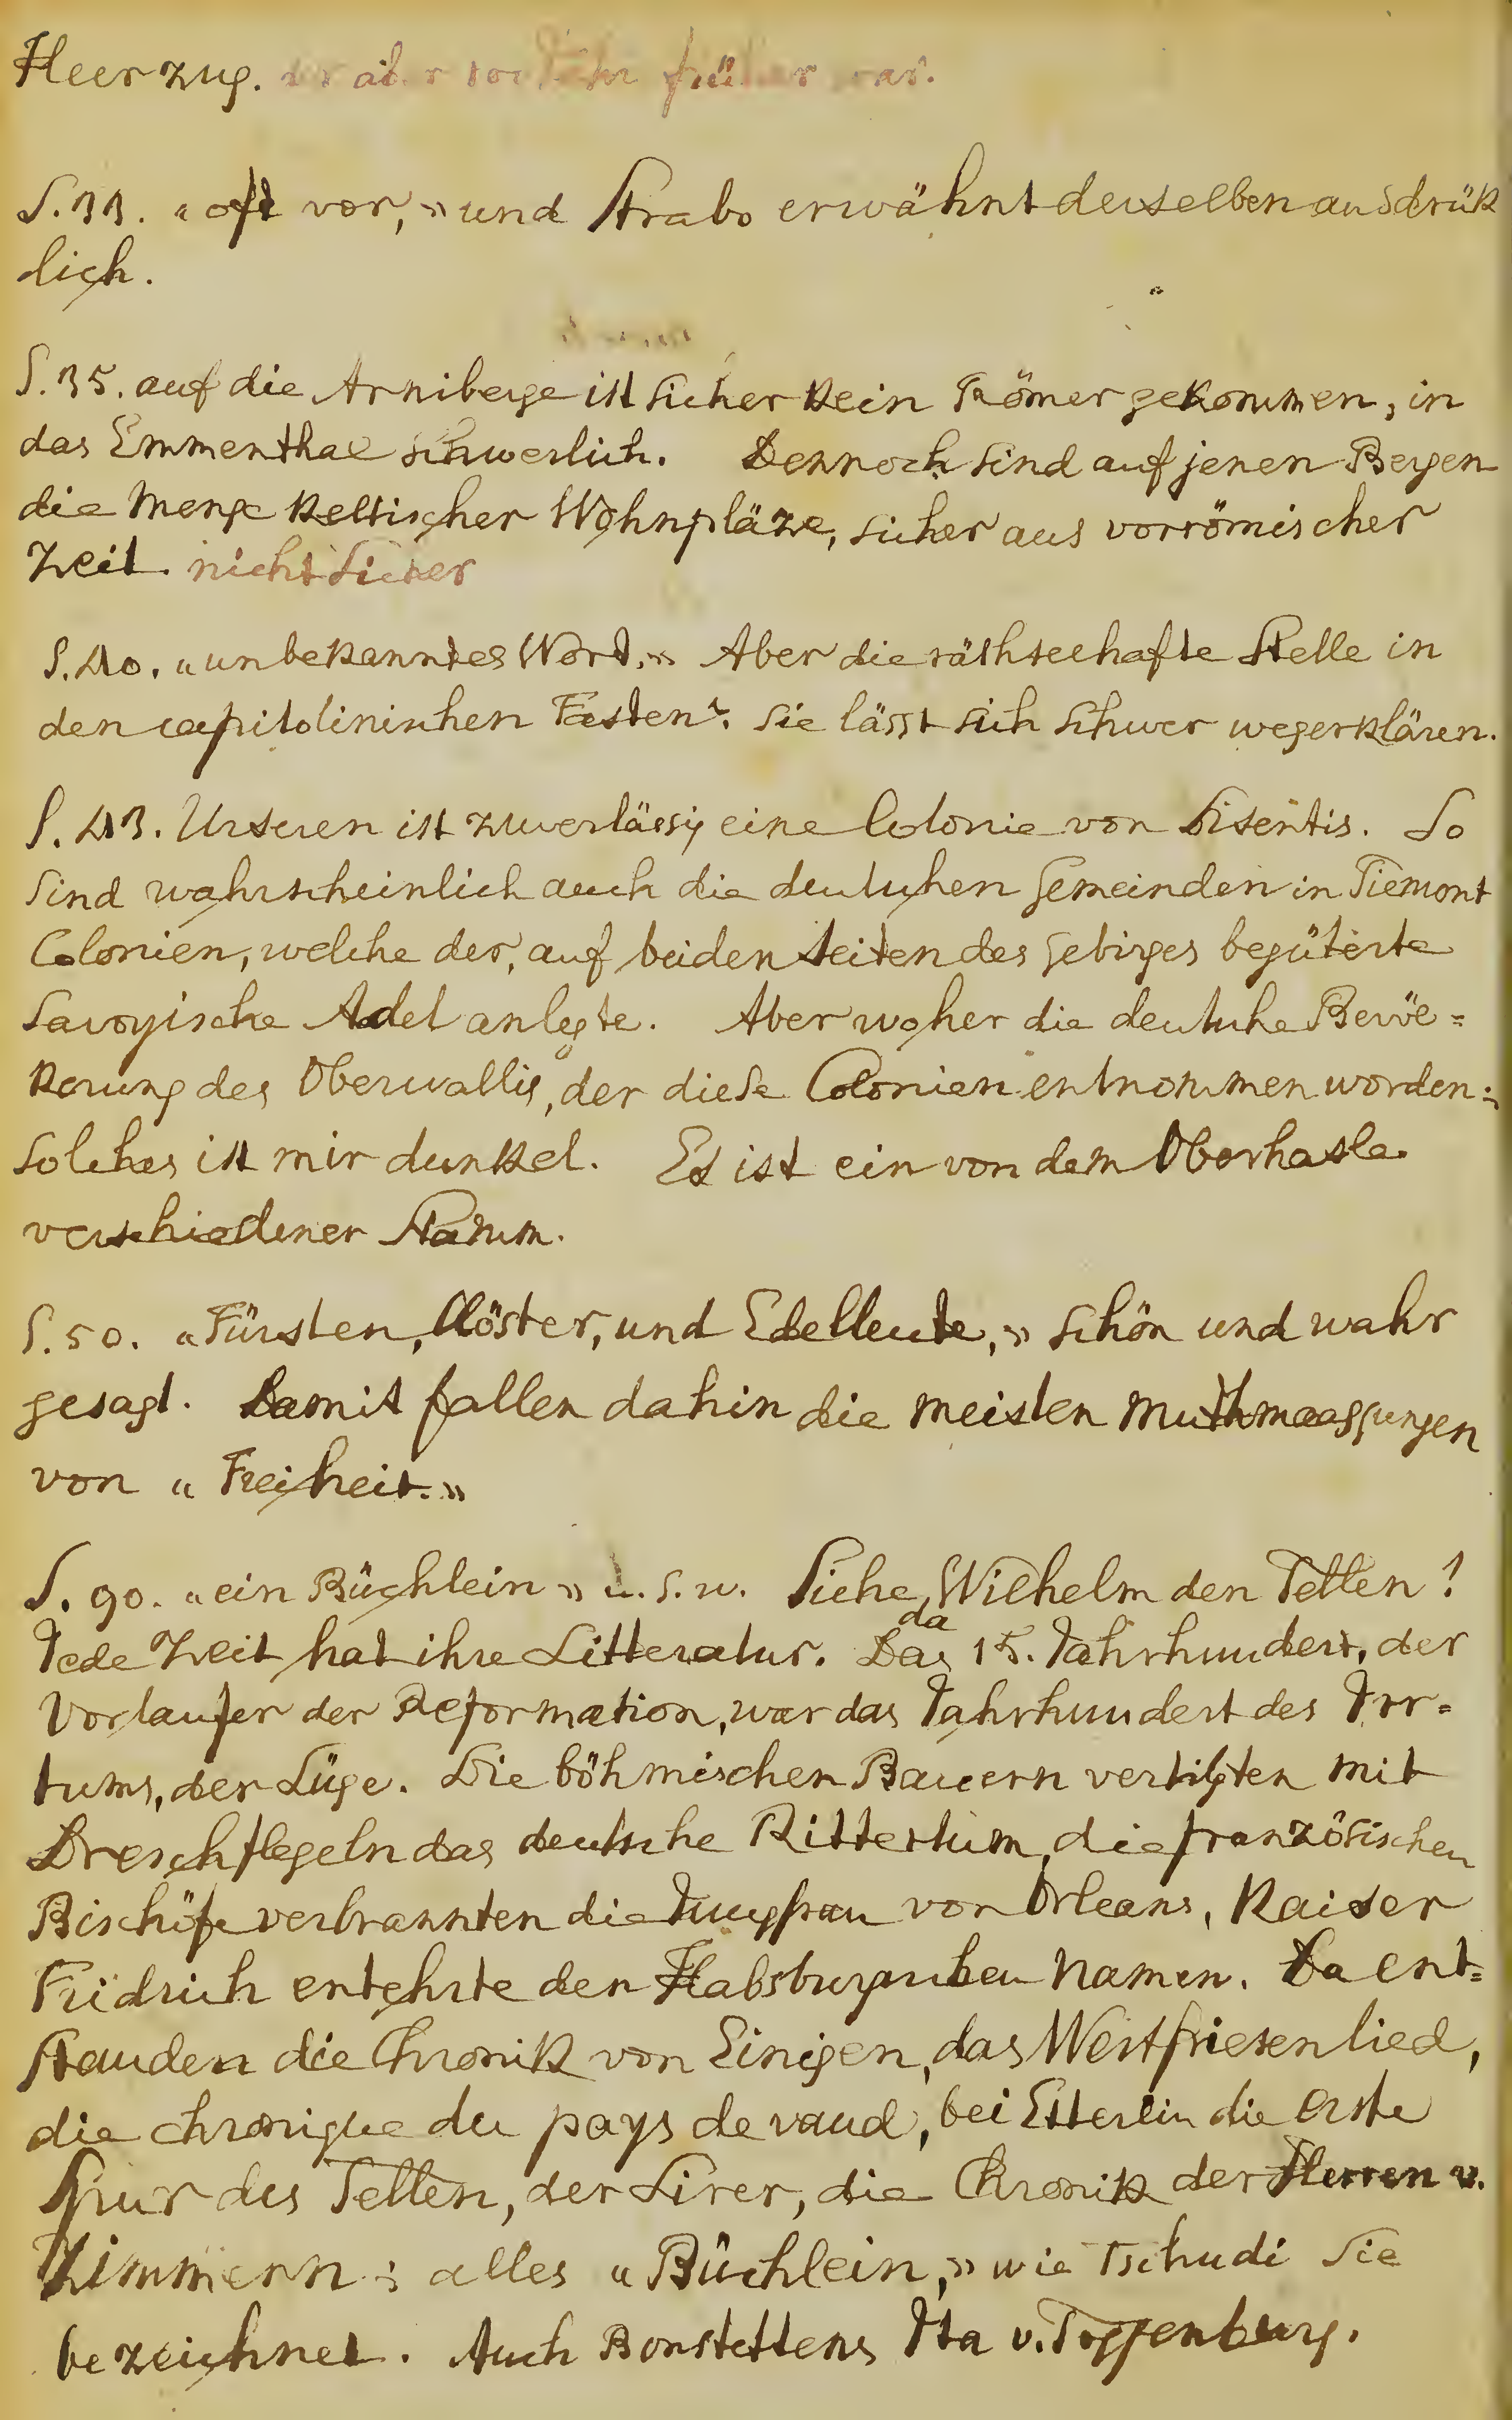 Heerzug. früher war.
S. 33. « oft vor, » und Strabo erwähnt derselben ausdrük
lich.
S. 35. auf die Arniberge ist sicher kein Römer gekommen, in
das Emmenthal schwerlich. Dennoch sind auf jenen Bergen
die Menge keltischer Wohnpläze, sicher aus vorrömischer
Zeit. nicht sicher
S. 40. « unbekanntes Wort. » Aber die räthselhafte Stelle in
den capitolinischen Fasten? Sie lässt sich schwer wegerklären.
S. 43. Urseren ist zuverlässig eine Colonie von Disentis. So
sind wahrscheinlich auch die deutschen Gemeinden in Piemont
Colonien, welche der, auf beiden Seiten des Gebirges begüterte
Savoyische Adel anlegte. Aber woher die deutsche Bevöl=
kerung des Oberwallis, der diese Colonien entnommen worden:
solches ist mir dunkel. Es ist ein von dem Oberhasle
verschiedener Stamm.
S. 50. « Fürsten, Clöster, und Edelleute, » schön und wahr
gesagt. Damit fallen dahin die meisten Muthmaassungen
von « Freiheit. »
S. 90. « ein Büchlein » u. s. w. Siehe da Wilhelm den Tellen!
Jede Zeit hat ihre Litteratur. Das 15. Jahrhundert, der
Vorlaufer der Reformation, war das Jahrhundert des Irr=
tums, der Lüge. Die böhmischen Bauern vertilgten mit
Dreschflegeln das deutsche Rittertum, die französischen
Bischöfe verbrannten die Jungfrau von Orleans, Kaiser
Fridrich entehrte den Habsburgischen Namen. Da ent=
standen die Chronik von Einigen, das Westfriesenlied,
die chronique du pays de vaud, bei Etterlin die erste
Spur des Tellen, der Lirer, die Chronik der Herren v.
Zimmern: alles « Büchlein, » wie Tschudi sie
bezeichnet. Auch Bonstettens Ita v. Toggenburg.